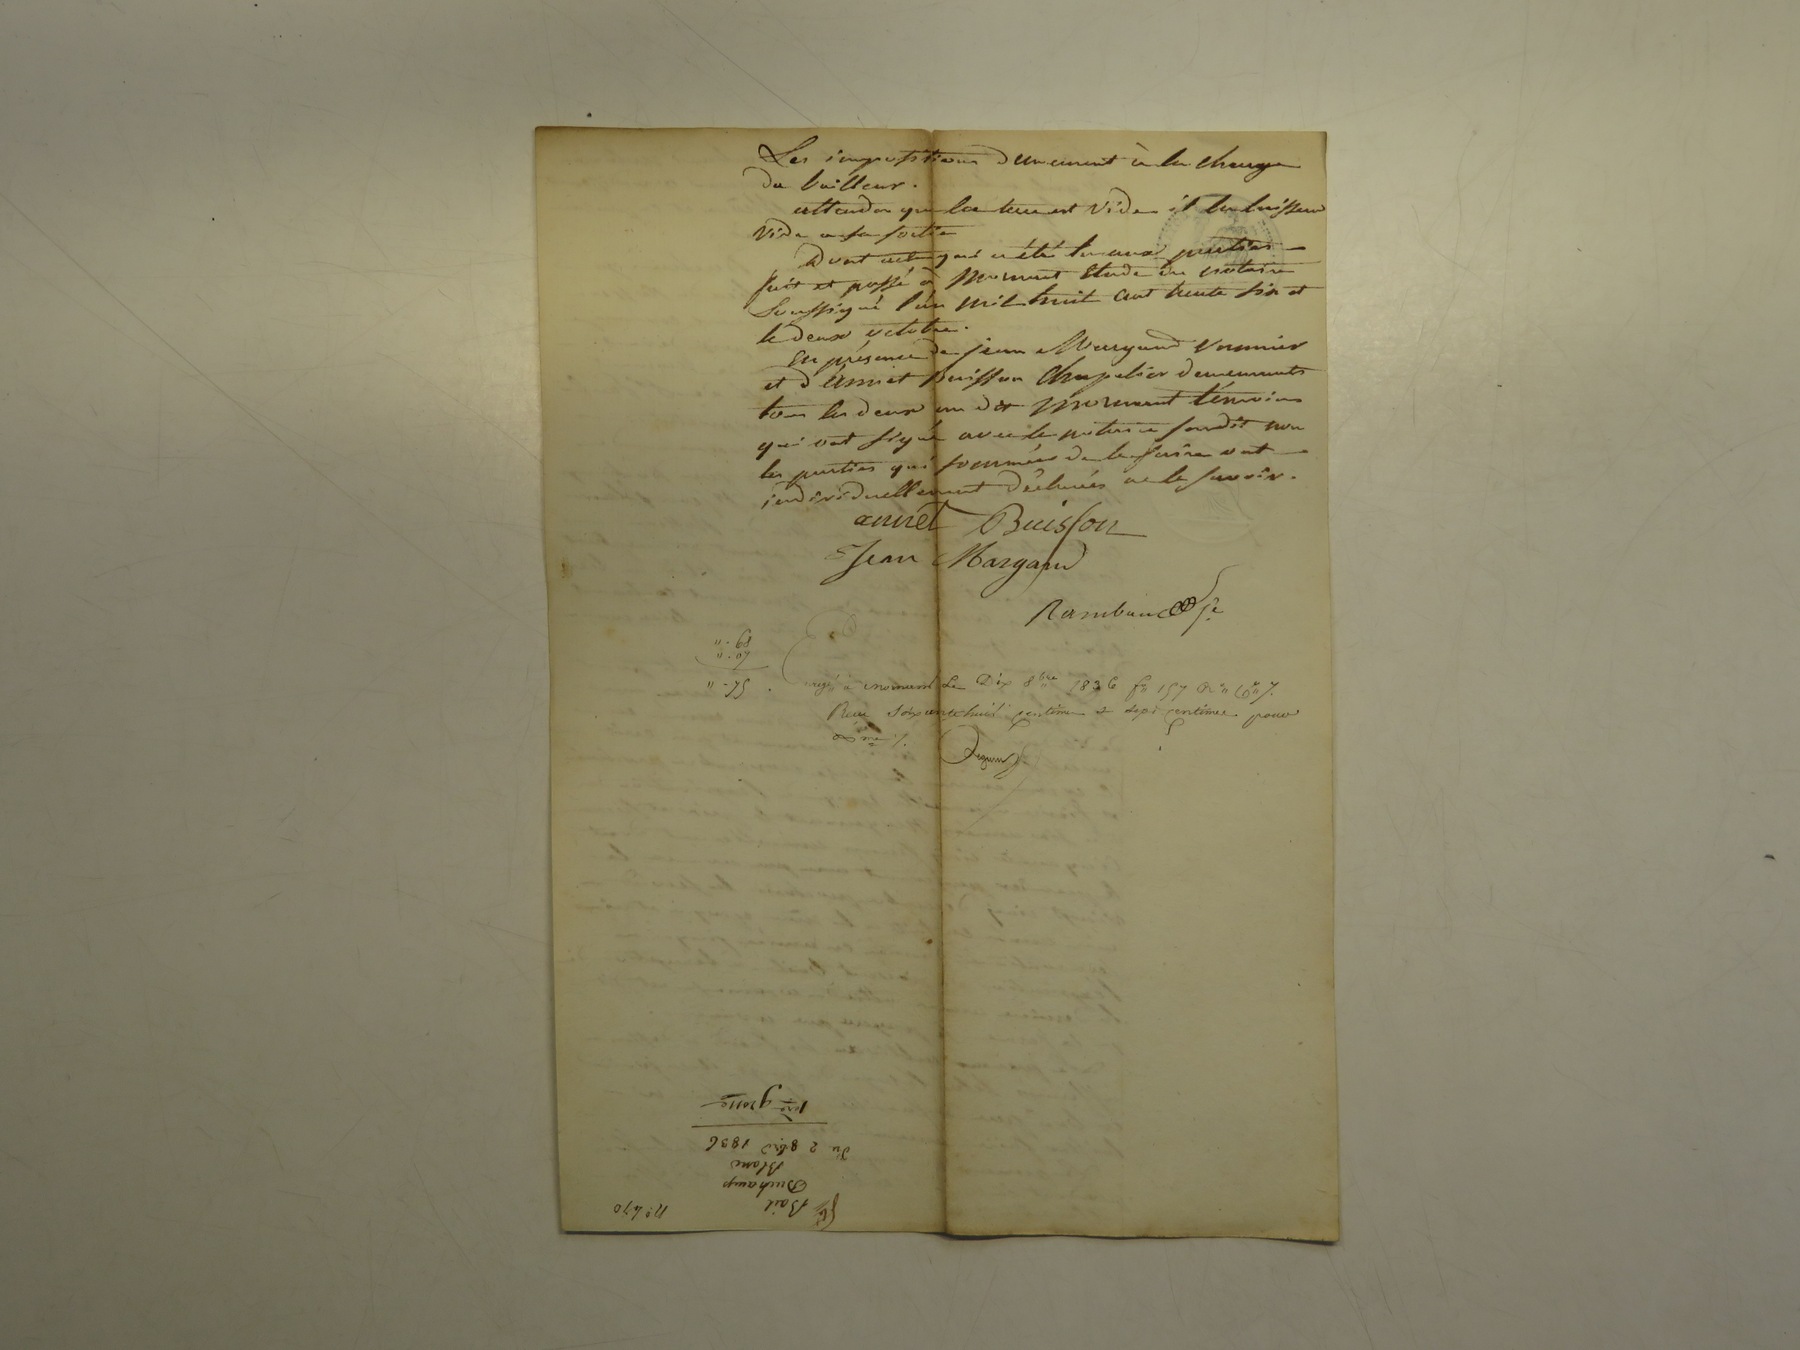 Les impositions demeurent à la charge
du bailleur.
attendu que la terre est vide il la laissera
vide a sa sortie
Dont acte qui a été lu aux parties
fait et passé à Mornant Etude du notaire
soussigné l'an mil huit cent trente six et
le deux octobre.
En présence de jean Margand
et d'annet Buisson Chapelier demeurants
tous les deux au dit Mornant témoins
qui ont signé avec le notaire susdit non
les parties qui sommées de le faire ont
individuellement déclarés ne le savoir.
annet Buisson
Jean Margand
à mornant Le Dix 8bre 1836 fo 157
Reçu soixante huit centimes & sept centimes pour
Bail
Duchamp
Blanc
du 2 8bre 1836
1ère grosse
no 470